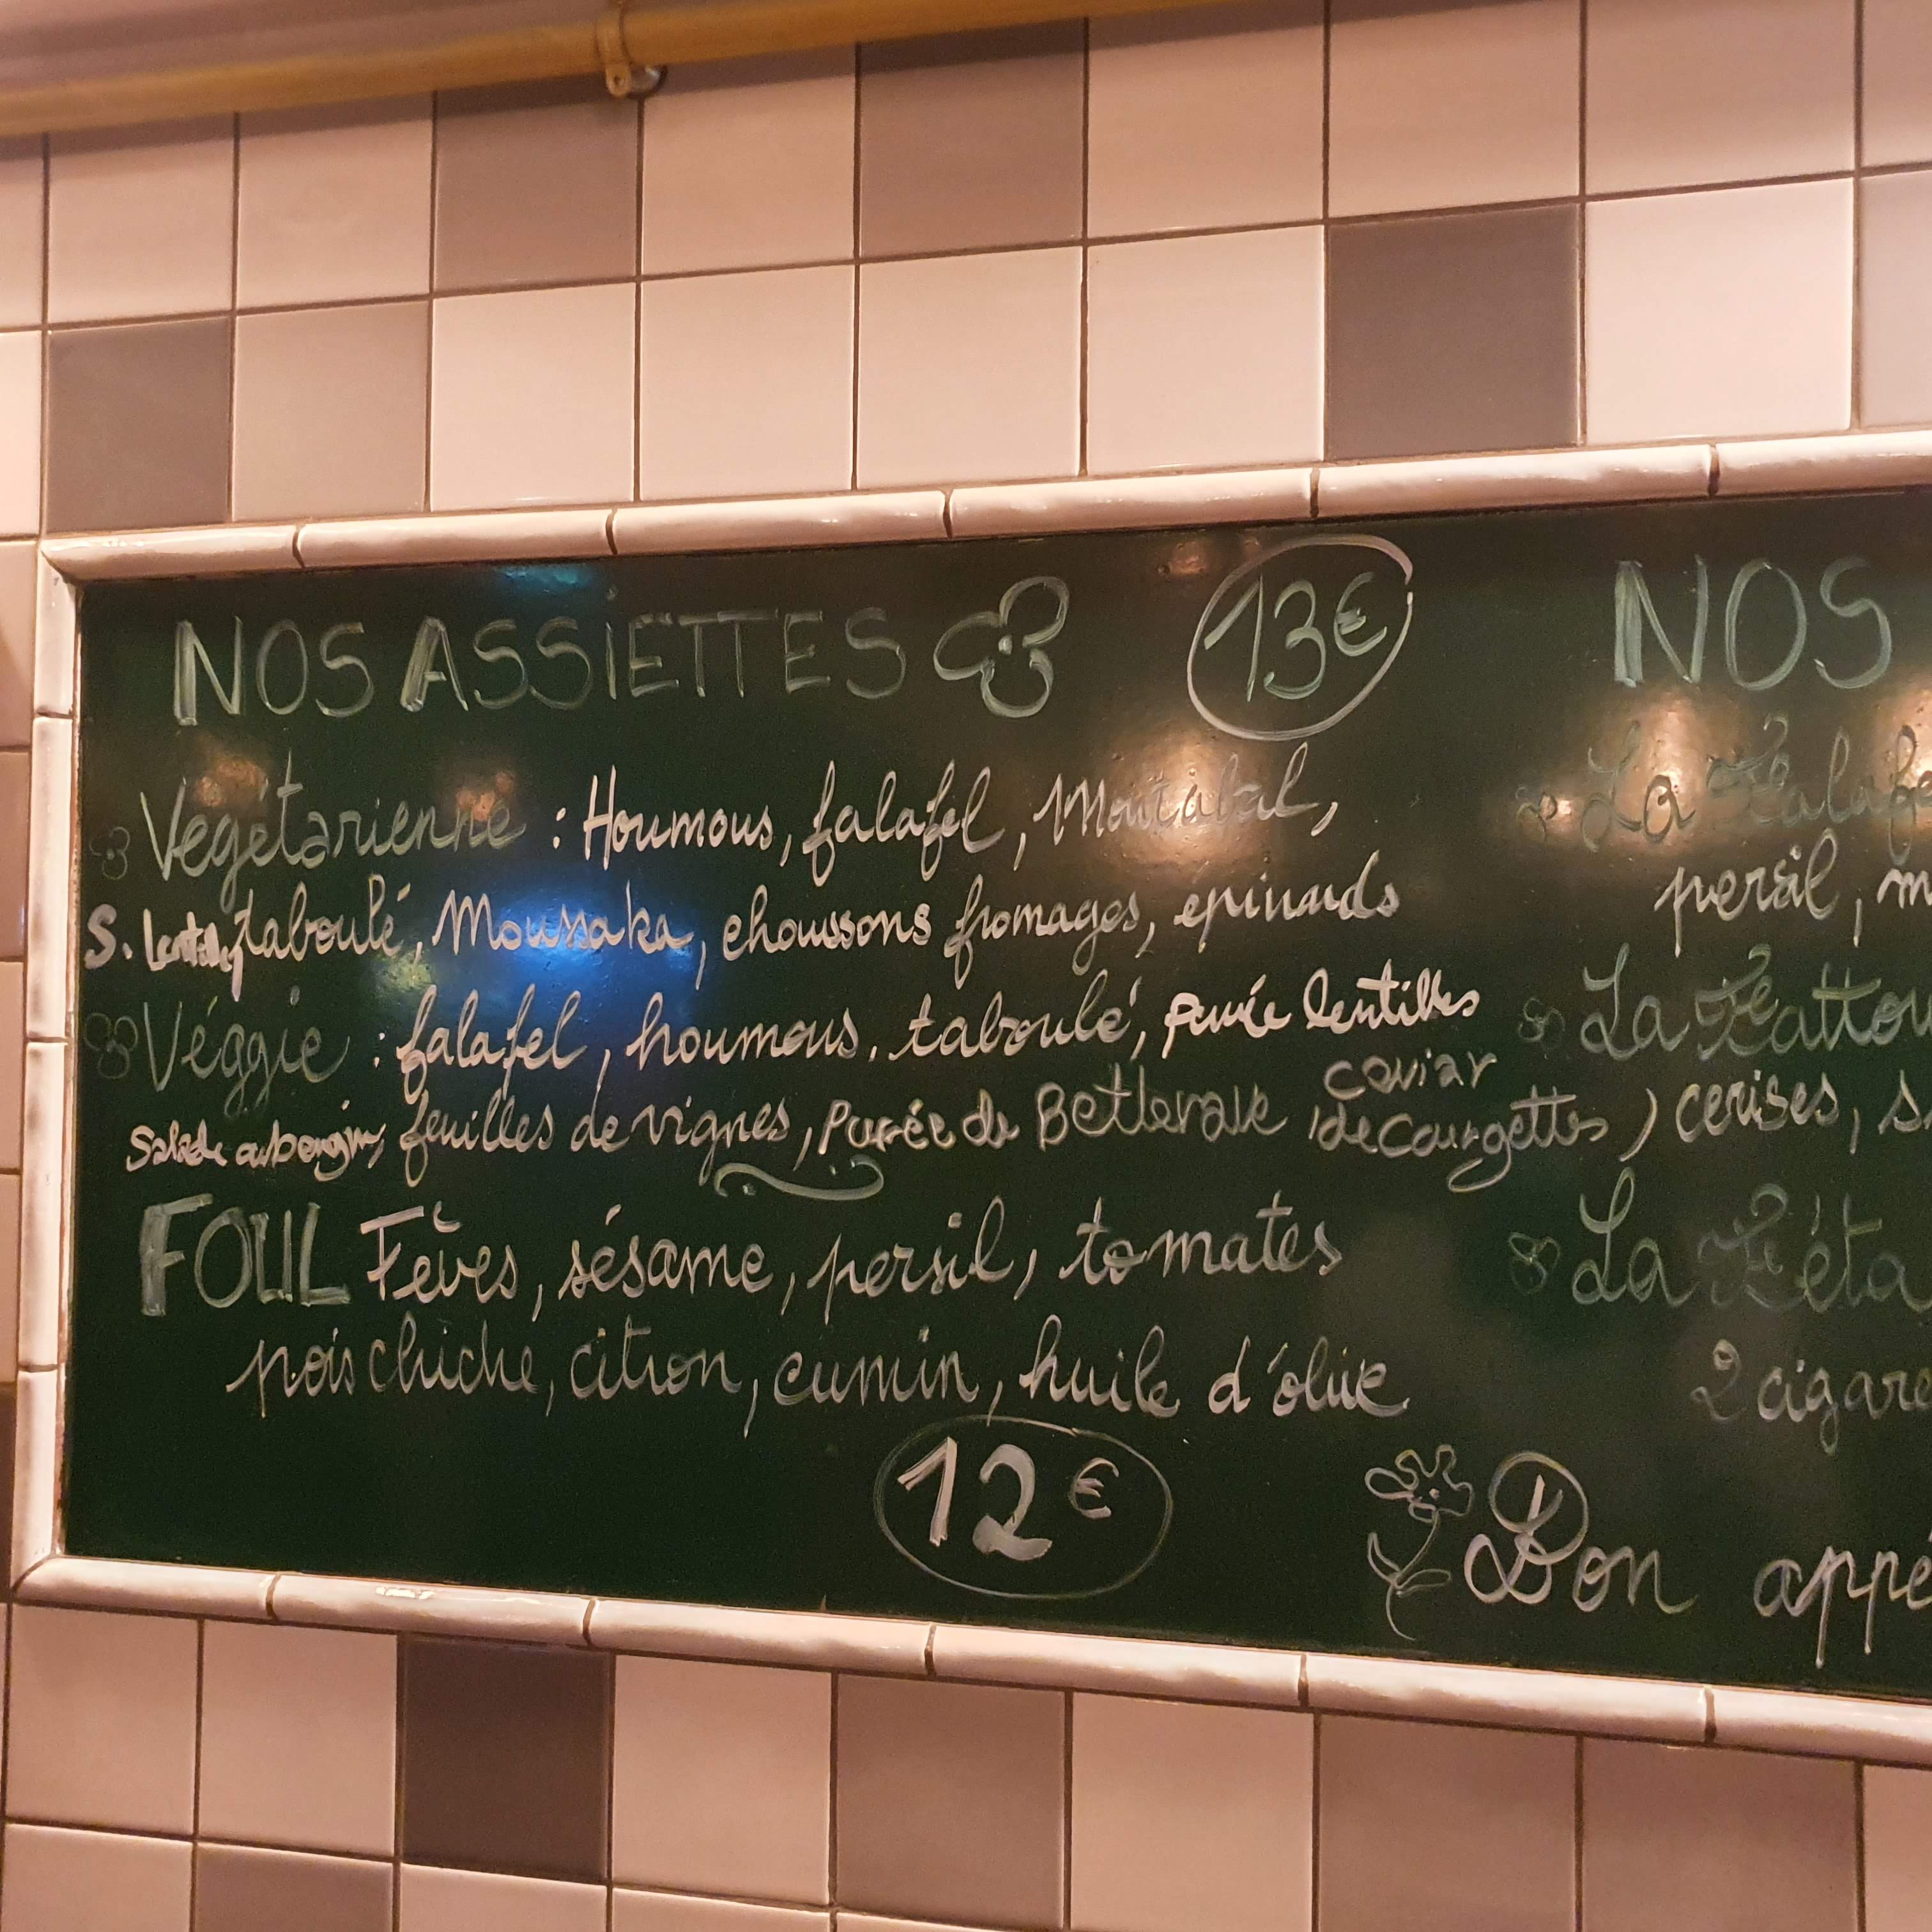 NOS ASSIETTES 13€
Végétarienne : Houmous, falafel, Moutabal,
S. lentilles, taboulé, Moussaka, choussons fromages, epinards
Véggie : falafel, houmous, taboulé, purée lentilles
Salade aubergine, feuilles de vignes, Purée de Betterave, caviar de courgettes
FOUL Fèves, sésame, persil, tomates
pois chiche, citron, cumin, huile d'olive
12€
NOS
La
persil,
La
, cerises,
La Féta
2
Bon